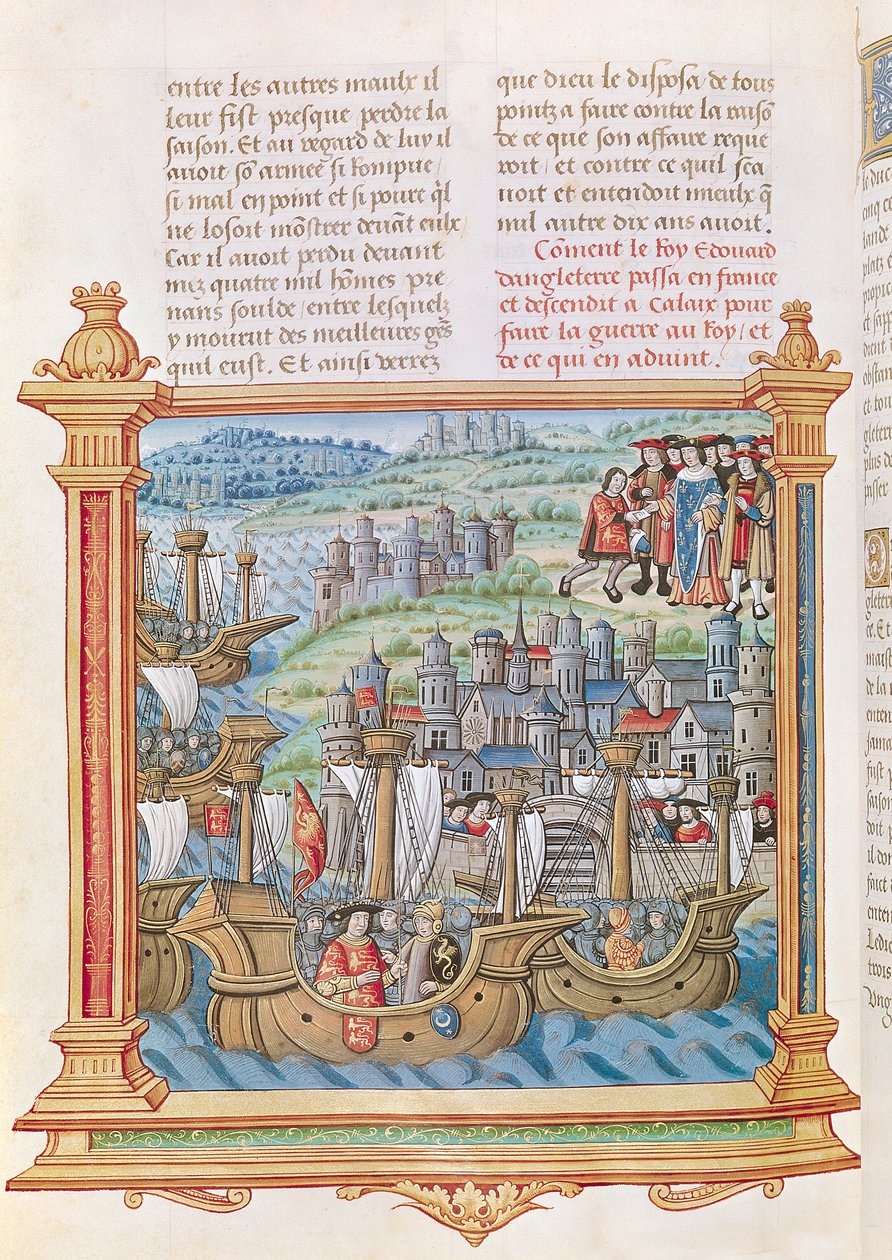 entre les autres maulx il
leur fist presque perdre la
saison. Et au regard de luy il
auoit sõ armee si rompue /
si mal en point et si poure q̃l
ne losoit mõstrer deuãt eulx /
Car il auoit perdu deuant
nuz quatre mil hõmes pre
nans soulde / entre lesquelz
y mourut des meilleures gẽs
quil eust. Et ainsi verrez
que dieu le disposa / de tous
pointz a faire contre la raisõ
de ce que son affaire reque
roit / et contre ce quil sca
uoit et entendoit mieulx q̃
nul autre dix ans auoit.
Cõment le Roy Edouard
dangleterre passa en france
et descendit a Calaix pour
faire la guerre au Roy / et
de ce qui en aduint.
le duc
cinq ce
lande
platz e
propic
et sapp
dient
obstan
et tou
gleterr
plus de
passer
gleterr